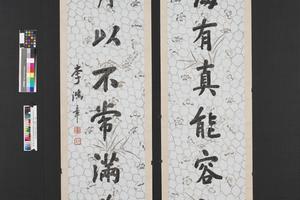 有真能容
以不常滿
李鴻章